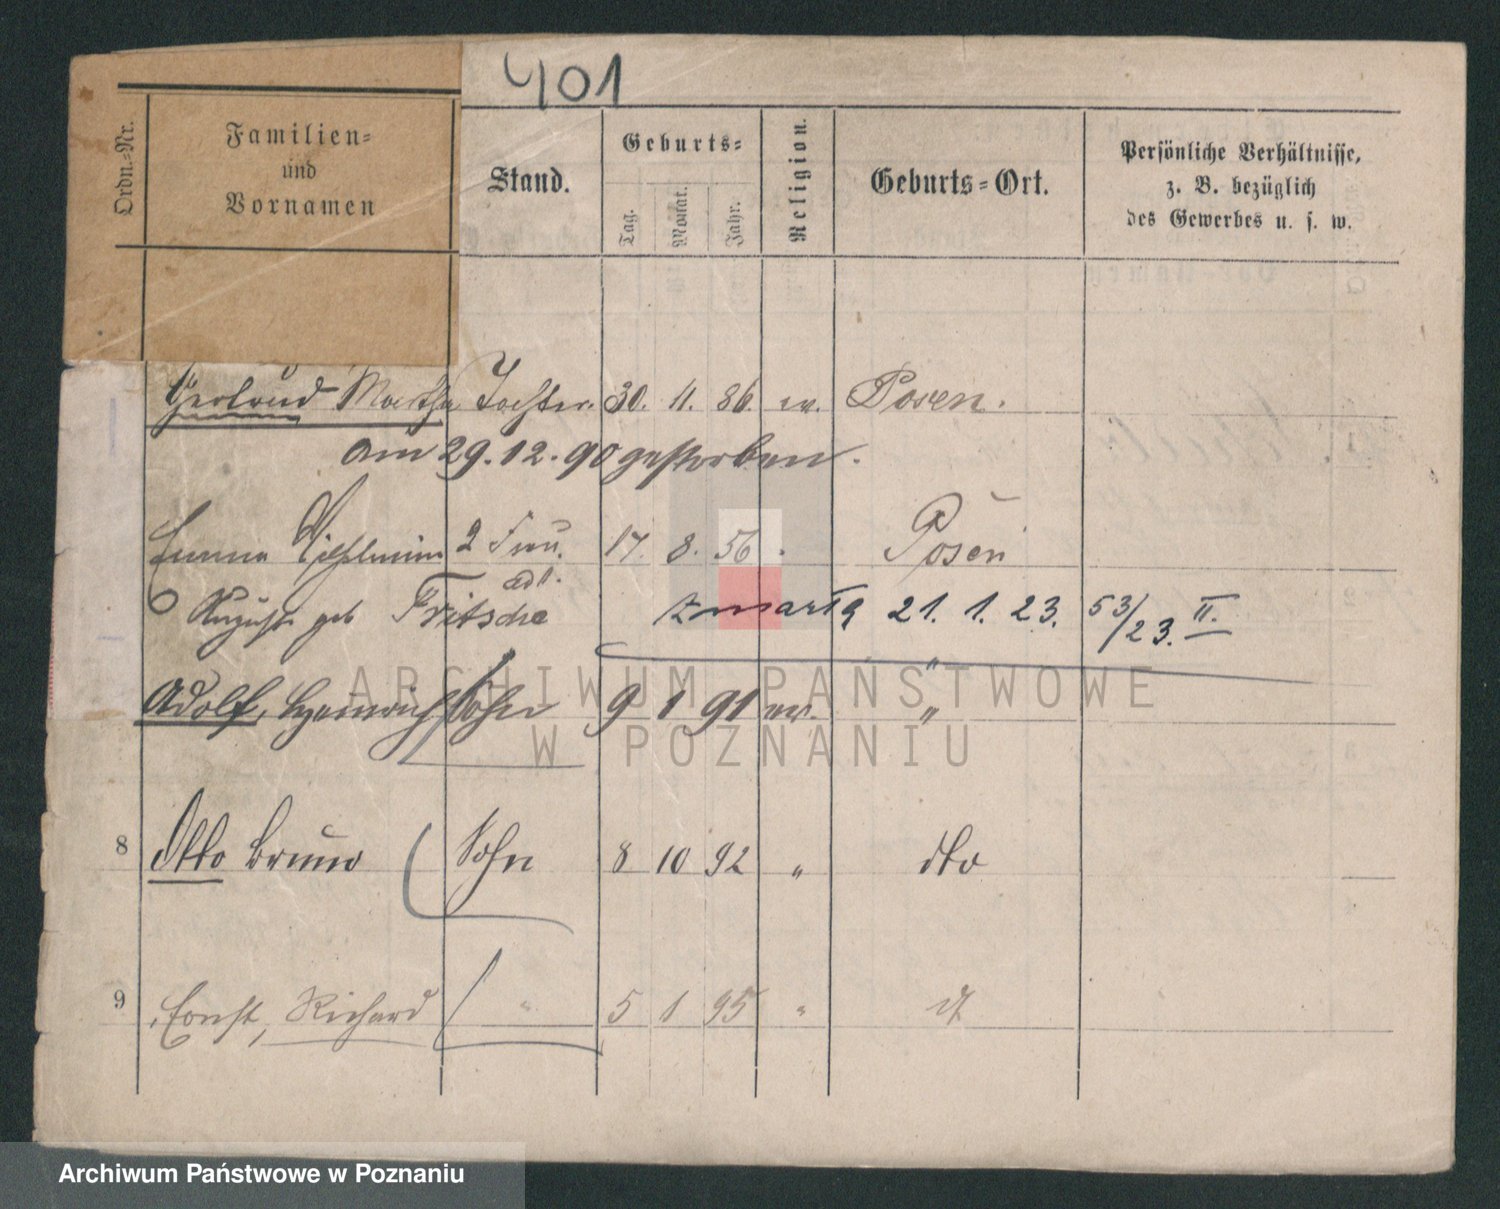 401
Ordn.=Nr.
Familien=
und
Vornamen
Stand.
Geburts=
Tag.
Monat.
Jahr.
Religion.
Geburts=Ort.
Persönliche Verhältnisse,
z. B. bezüglich
des Gewerbes u. s. w.
Gertrud Martha Tochter. 30. 11. 86. ev. Posen.
am 29.12.90 gestorben.
Emma Wilhelmine 2 Frau. 17. 8. 56. Posen
August geb Fritsche zmarła 21. 1. 23. 53/23. II.
"
Adolf, Heinrich Sohn 9 1 91 ev. "
8 Otto Bruno Sohn 8 10 92 " dto
9 Ernst, Richard " 5 1 95 " dt
ARCHIWUM PAŃSTWOWE
W POZNANIU
Archiwum Państwowe w Poznaniu